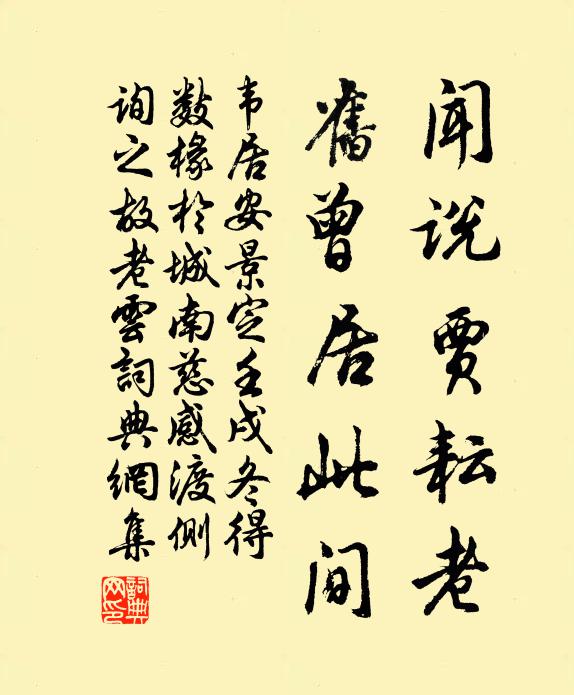 闻说贾耘老
旧曾居此间
韦居安景定壬戌冬得
数椽于城南慈感渡侧
询之故老云词典网集
词典网印